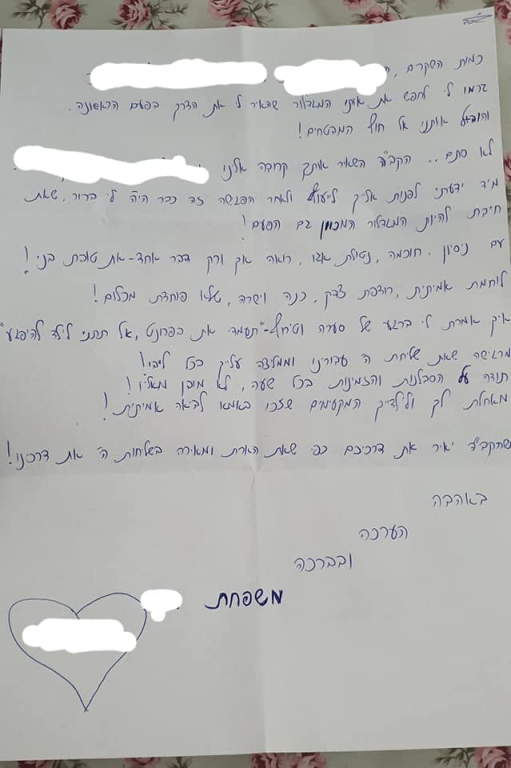 בס"ד
כמות השקרים,
גרמו לי לחפש את אותו המגדלור שהאיר לי את הדרך בפעם הראשונה.
והוביל אותנו אל חוף המבטחים!
לא סתם.. הקב"ה השאר אותך קרובה אלנו
מיד ידעתי לפנות אליך ליעוץ ולאחר הפגישה זה כבר היה לי ברור, שאת
חייבת להיות המגדלור המכוון גם הפעם!
עם ניסיון, חוכמה, נטולת אגו, רואה אך ורק דבר אחד-את טובת בני!
לוחמת אמיתית, רודפת צדק, כנה וישרה, שלא פוחדת מכלום!
איך אמרת לי ברגע של סערה וטירוף-"תעמדי את כפרונט, אל תתני לילד להיפגע"
מרגישה שאת שליחת ה' עבורינו וממליצה עליך בכל ליבי!
תודה על הסבלנות והזמינות בכל שעה, לא מובן מאליו!
מאחלת לך ולילדיך המקסימים שזכו באמא לביאה אמיתית!
שהקב"ה יאיר את דרכיכם כפי שאת הארת ומאירה בשליחות ה' את דרכינו!
באהבה
הערכה
ובברכה
משפחת